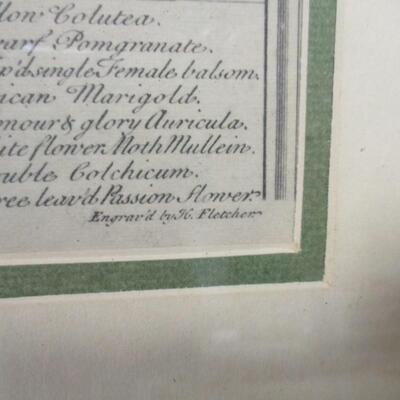 llow Colutea.
warf Pomgranate.
ip'd single Female balsom.
ican Marigold.
onour & glory Auricula.
ite flower. Moth Mullein.
ouble Colchicum.
ree leav'd Passion flower.
Engrav'd by H. Fletcher